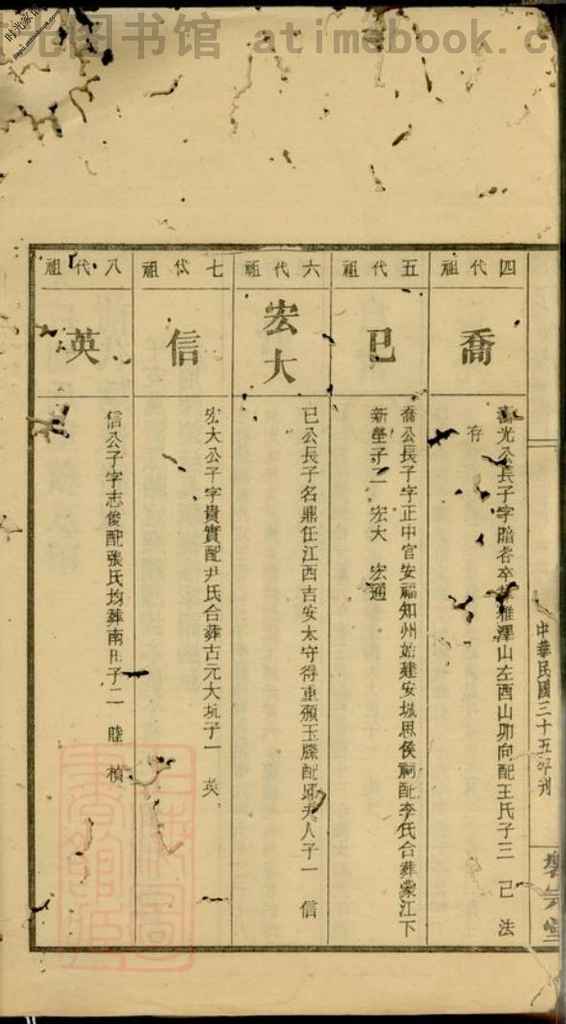 时光图书馆 atimebook.c
中華民國三十五年刊
四代祖
喬
光公長子字
山左酉山卯向配王氏子三 己 法
存
五代祖
巳
喬公長子字正中官安福知州始建安城思侯祠配李氏合葬蒙江下
新塋子二 宏大 宏通
六代祖
宏大
巳公長子名鼎任江西吉安太守得重頒玉牒配夫人子一 信
七代祖
信
宏大公子字貴實配尹氏合葬古元大坑子一 英
八代祖
英
信公子字志俊配張氏均葬南子二 睦 楨